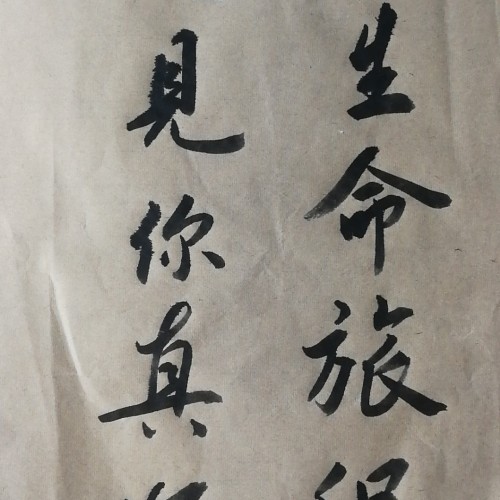 生命旅
見你真